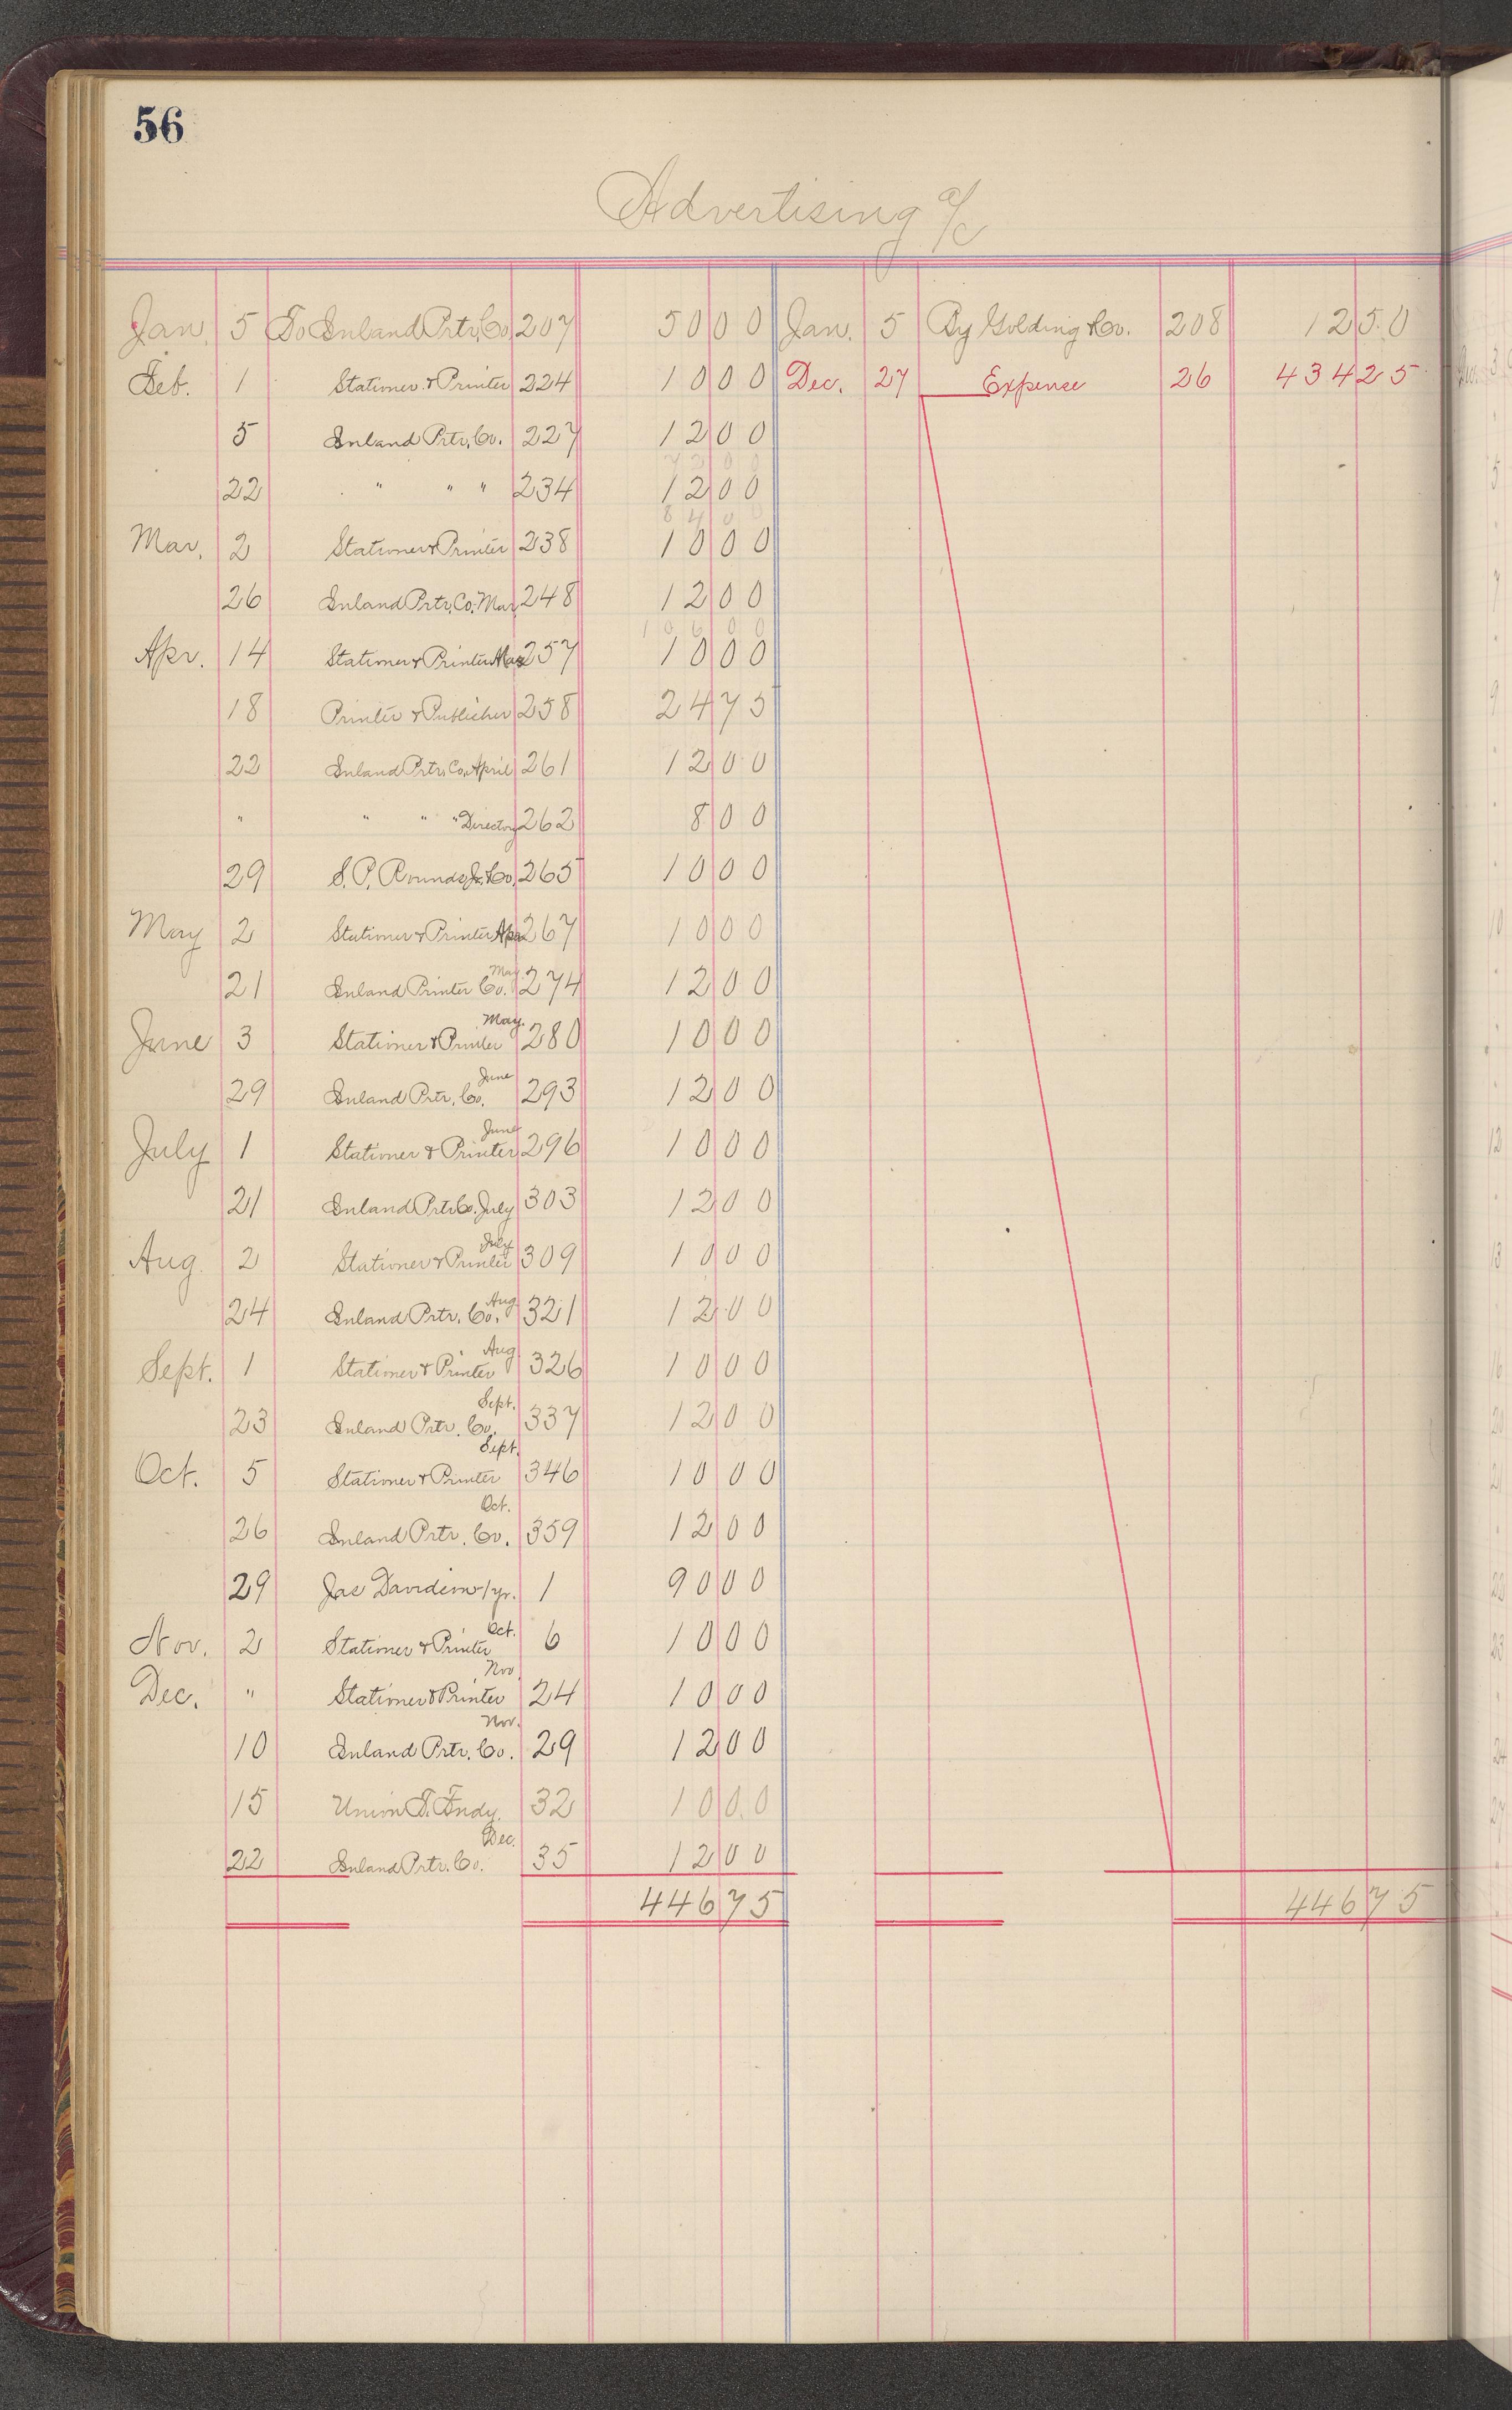 56
Advertising a/c
Jan. 5 To Inland Prtr. Co. 207 50 00 Jan. 5 By Golding & Co. 208 12 50
Feb. 1 Stationer & Printer 224 10 00 Dec. 27 Expense 26 434 25
5 Inland Prtr. Co. 227 12 00
72 00
22 " " " 234 12 00
84 00
Mar. 2 Stationer & Printer 238 10 00
26 Inland Prtr. Co. Mar. 248 12 00
106 00
Apr. 14 Stationer & Printer Mar 257 10 00
18 Printer & Publisher 258 24 75
22 Inland Prtr. Co. April 261 12 00
" " " " Directory 262 8 00
29 S. P. Rounds Jr. & Co. 265 10 00
May 2 Stationer & Printer Apr 267 10 00
21 Inland Printer Co. May 274 12 00
June 3 Stationer & Printer May. 280 10 00
29 Inland Prtr. Co. June 293 12 00
July 1 Stationer & Printer June 296 10 00
21 Inland Prtr Co. July 303 12 00
Aug. 2 Stationer & Printer July 309 10 00
24 Inland Prtr. Co. Aug 321 12 00
Sept. 1 Stationer & Printer Aug 326 10 00
23 Inland Prtr. Co. Sept. 337 12 00
Oct. 5 Stationer & Printer Sept. 346 10 00
26 Inland Prtr. Co. Oct. 359 12 00
29 Jas Davidson 1 yr. 1 90 00
Nov. 2 Stationer & Printer Oct. 6 10 00
Dec. " Stationer & Printer Nov. 24 10 00
10 Inland Prtr. Co. Nov. 29 12 00
15 Union T. Fndy. 32 10 00
22 Inland Prtr. Co. Dec. 35 12 00
446 75 446 75